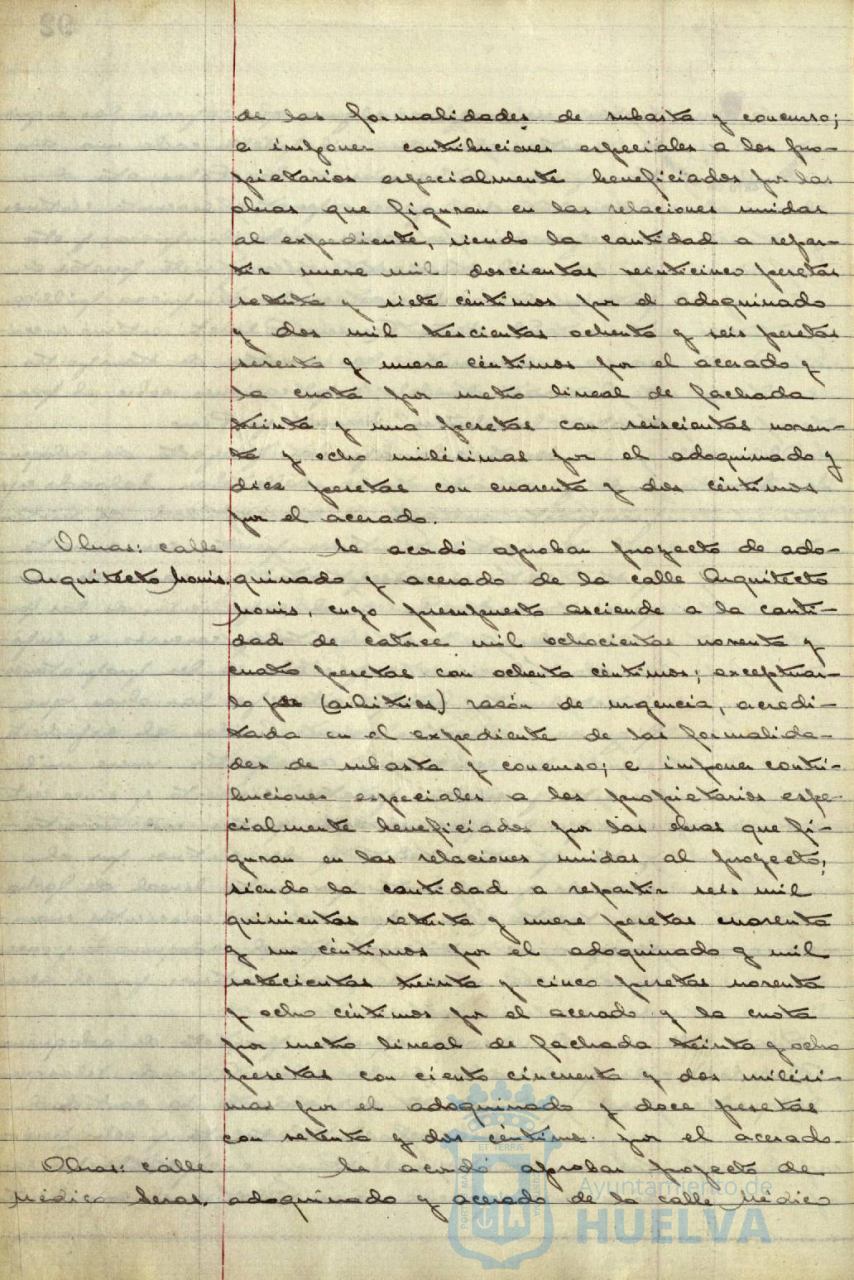 de las formalidades de subasta y concurso;
e imponer contribuciones especiales a los pro-
pietarios especialmente beneficiados por las
obras que figuran en las relaciones unidas
al expediente, siendo la cantidad a repar-
tir nueve mil doscientas veinticinco pesetas
setenta y siete céntimos por el adoquinado
y dos mil trescientas ochenta y seis pesetas
sesenta y nueve céntimos por el acerado y
la cuota por metro lineal de fachada
treinta y una pesetas con seiscientas noven-
ta y ocho milésimas por el adoquinado y
doce pesetas con cuarenta y dos céntimos
por el acerado.
Obras: calle
Arquitecto Monis.
Se acordó aprobar proyecto de ado-
quinado y acerado de la calle Arquitecto
Monis, cuyo presupuesto asciende a la canti-
dad de catorce mil ochocientas noventa y
cuatro pesetas con ochenta céntimos; exceptuar-
lo por (arbitrios) razón de urgencia, acredi-
tada en el expediente de las formalida-
des de subasta y concurso; e imponer contri-
buciones especiales a los propietarios espe-
cialmente beneficiados por las obras que fi-
guran en las relaciones unidas al proyecto;
siendo la cantidad a repartir seis mil
quinientas setenta y nueve pesetas cuarenta
y un céntimos por el adoquinado y mil
setecientas treinta y cinco pesetas noventa
y ocho céntimos por el acerado y la cuota
por metro lineal de fachada treinta y ocho
pesetas con ciento cincuenta y dos milési-
mas por el adoquinado y doce pesetas
con setenta y dos céntimos por el acerado.
Obras: calle
Médico Seras.
Se acordó aprobar proyecto de
adoquinado y acerado de la calle Médico
Ayuntamiento de
HUELVA